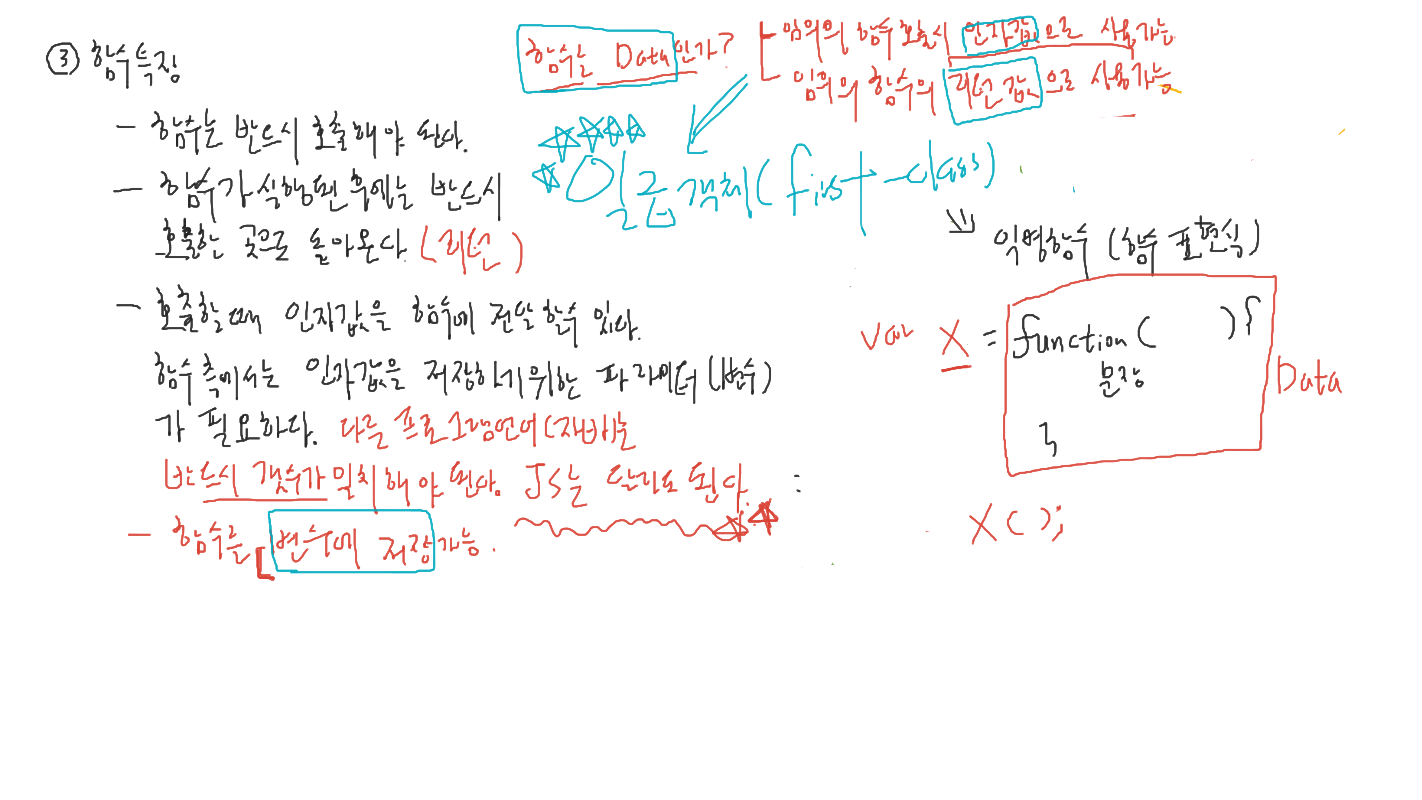 ③ 함수특징
- 함수는 반드시 호출해야 된다.
- 함수가 실행된 후에는 반드시
호출한 곳으로 돌아온다. (리턴)
- 호출할때 인자값을 함수에 전달할수 있다.
함수측에서는 인자값을 저장하기위한 파라미터(변수)
가 필요하다. 다른 프로그램언어(자바)는
반드시 갯수가 일치해야 된다. JS는 달라도 된다.
- 함수를 변수에 저장가능.
함수는 Data인가?
임의의 함수호출시 인자값으로 사용가능
임의의 함수의 리턴값으로 사용가능
일급객체(first-class)
익명함수 (함수 표현식)
var X = function( ){
문장
}
Data
X( );